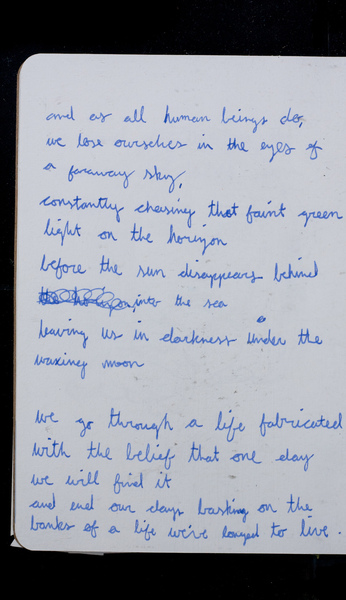 and as all human beings do,
we lose ourselves in the eyes of
a faraway sky,
constantly chasing that faint green
light on the horizon
before the sun disappears behind
the horizon, into the sea
leaving us in darkness under the
waxing moon
we go through a life fabricated
with the belief that one day
we will find it
and end our days basking on the
banks of a life we've longed to live.